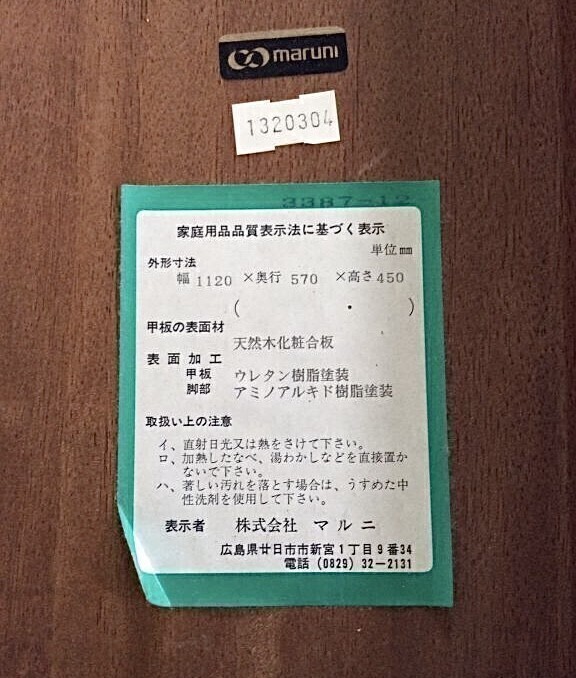 maruni
1320304
3387-12
家庭用品品質表示法に基づく表示
単位㎜
外形寸法
幅 1120 ×奥行 570 ×高さ 450
( ・ )
甲板の表面材
天然木化粧合板
表面加工
甲板 ウレタン樹脂塗装
脚部 アミノアルキド樹脂塗装
取扱い上の注意
イ、直射日光又は熱をさけて下さい。
ロ、加熱したなべ、湯わかしなどを直接置か
ないで下さい。
ハ、著しい汚れを落とす場合は、うすめた中
性洗剤を使用して下さい。
表示者 株式会社 マルニ
広島県廿日市市新宮1丁目9番34
電話 (0829) 32-2131